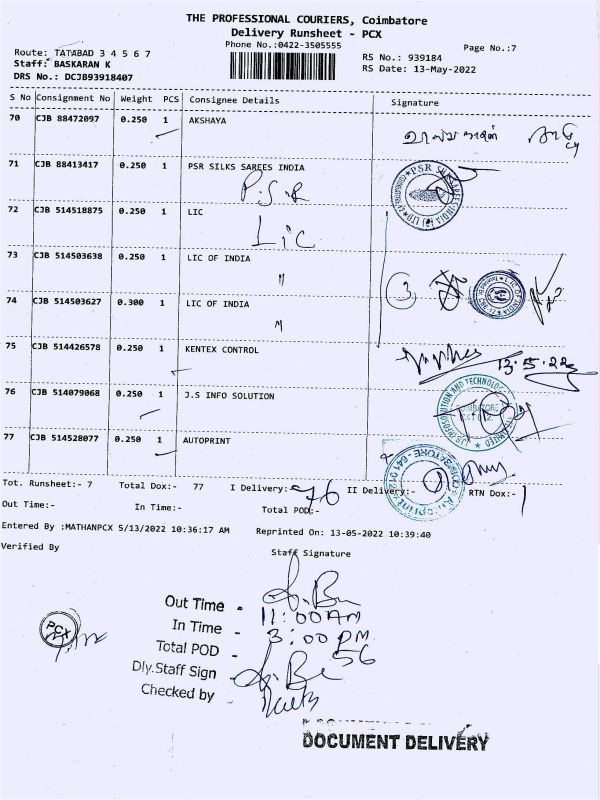 THE PROFESSIONAL COURIERS, Coimbatore
Delivery Runsheet - PCX
Phone No.:0422-3505555
Page No.:7
Route: TATABAD 3 4 5 6 7
Staff: BASKARAN K
DRS No.: DCJB93918407
RS No.: 939184
RS Date: 13-May-2022
S No Consignment No Weight PCS Consignee Details Signature
70 CJB 88472097 0.250 1 AKSHAYA
71 CJB 88413417 0.250 1 PSR SILKS SAREES INDIA
P.S.R
72 CJB 514518875 0.250 1 LIC
LIC
73 CJB 514503638 0.250 1 LIC OF INDIA
"
3
74 CJB 514503627 0.300 1 LIC OF INDIA
"
75 CJB 514426578 0.250 1 KENTEX CONTROL
13.5.22
76 CJB 514079068 0.250 1 J.S INFO SOLUTION
77 CJB 514528077 0.250 1 AUTOPRINT
Tot. Runsheet:- 7 Total Dox:- 77 I Delivery:- 76 II Delivery:- RTN Dox:- 1
Out Time:- In Time:- Total POD:-
Entered By :MATHANPCX 5/13/2022 10:36:17 AM Reprinted On: 13-05-2022 10:39:40
Verified By Staff Signature
Out Time - 11:00 AM
In Time - 3:00 PM
Total POD - 56
Dly.Staff Sign -
Checked by -
PCX
DOCUMENT DELIVERY